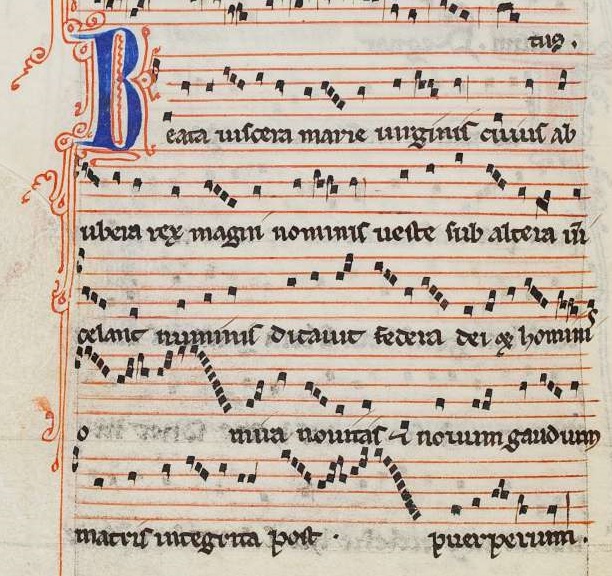 tus.
Beata uiscera marie uirginis cuius ab
ubera rex magni nominis ueste sub altera uim
celant numinis dictauit federa dei & hominis
o mira nouitas & nouum gaudium
matris integrita post. puerperium.